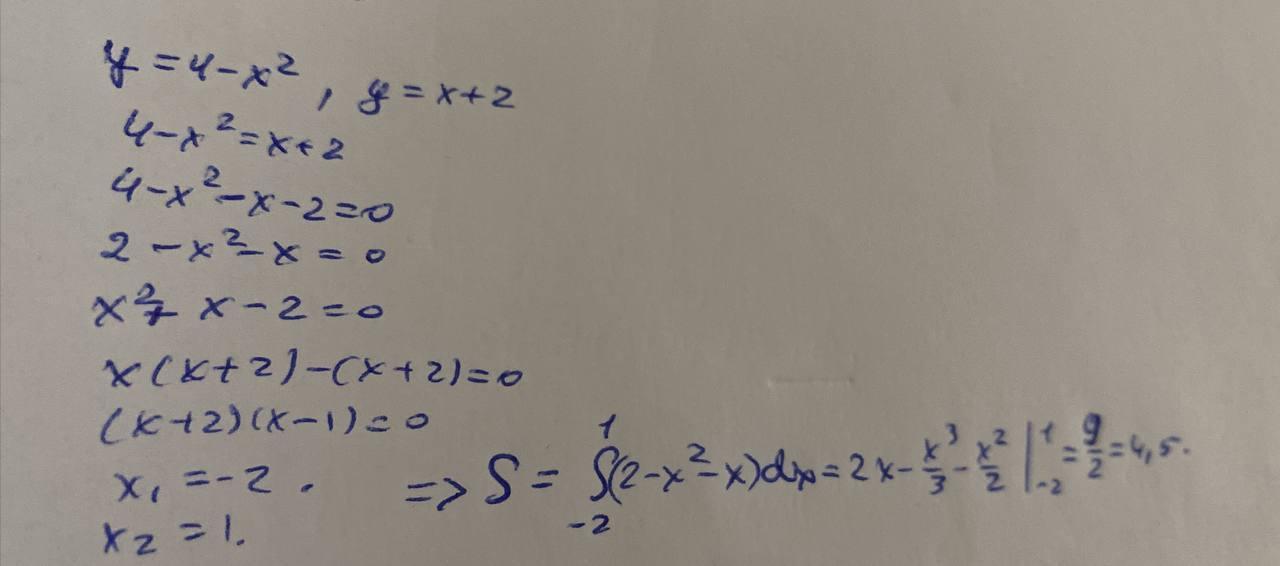 y = 4 - x², y = x + 2
4 - x² = x + 2
4 - x² - x - 2 = 0
2 - x² - x = 0
x² + x - 2 = 0
x(x + 2) - (x + 2) = 0
(x + 2)(x - 1) = 0
x₁ = -2.
x₂ = 1.
=> S = ∫₋₂¹(2 - x² - x)dx = 2x - x³/3 - x²/2 |₋₂¹ = 9/2 = 4,5.